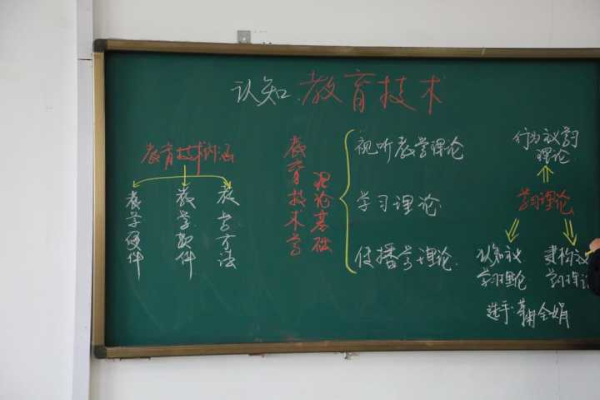 认知 教育技术
教育技术内涵
教学硬件
教学软件
教学方法
教育技术学
理论基础
视听教学理论
学习理论
传播学理论
行为主义学习
理论
学习理论
认知主义
学习理论
建构主义
学习理论
选手: